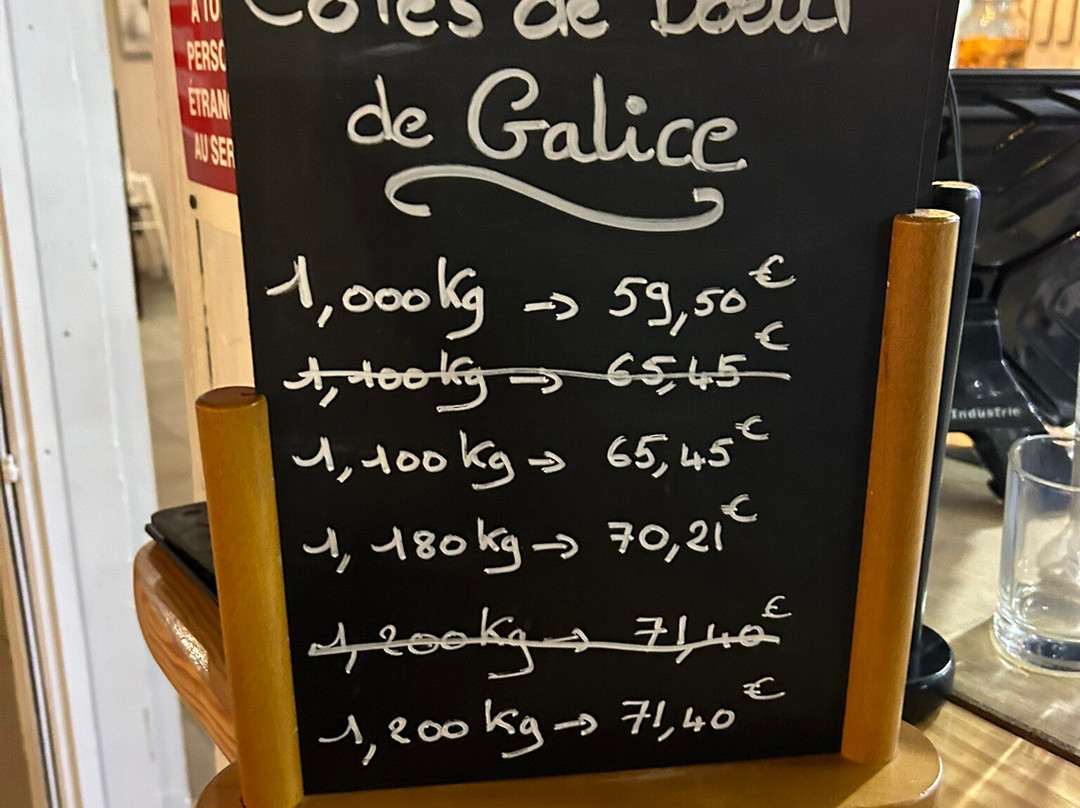 Côtes de Boeuf
de Galice
1,000kg → 59,50€
1,100kg → 65,45€
1,100kg → 65,45€
1,180kg → 70,21€
1,200kg → 71,40€
1,200kg → 71,40€
Industrie